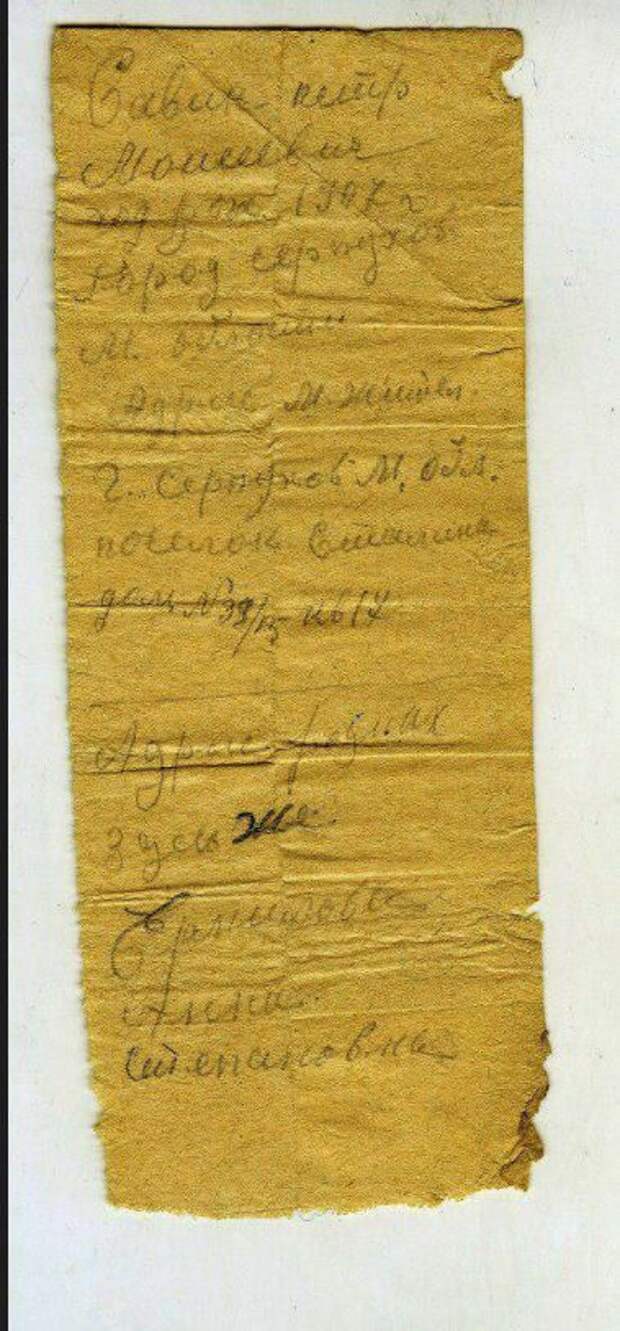 Савин петр
Моисевич
год рож. 1907 г
город серпухов
М. области
Адрис М. жител.
г. Серпухов М. обл.
поселок Сталина
дом № кв 14
Адрис родных
здесь же.
Ермилова
Анна
Степановна